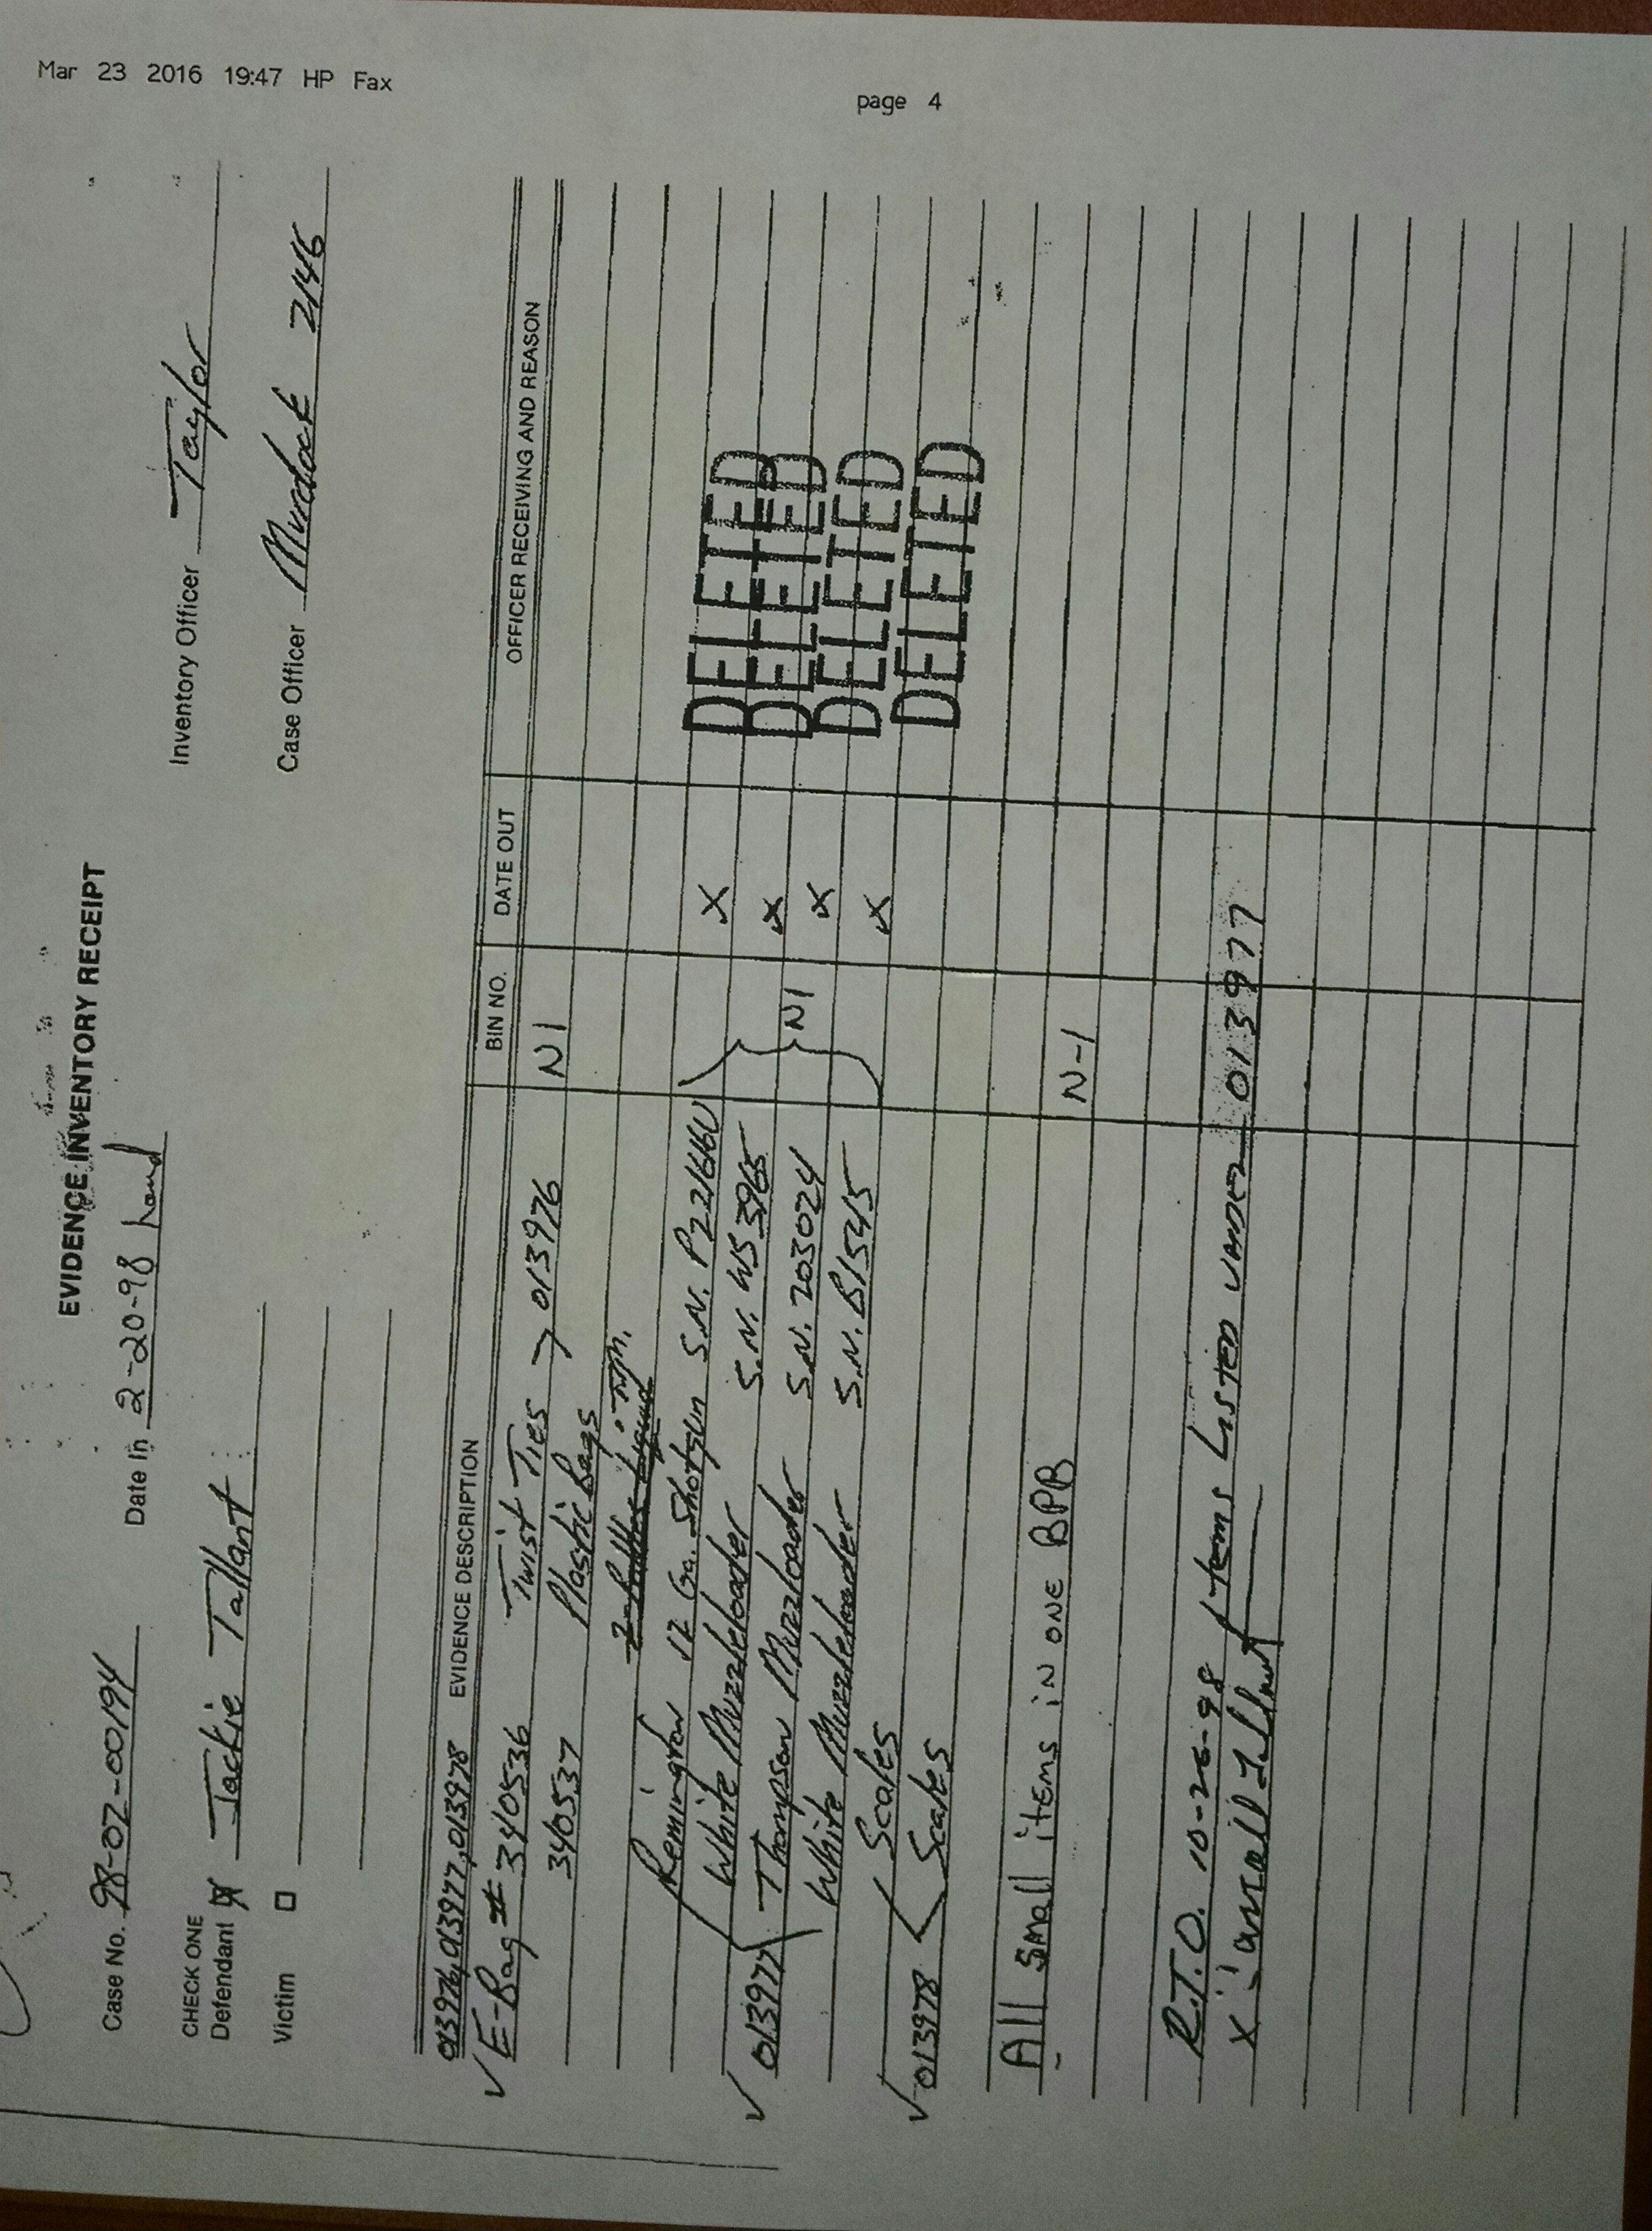 Mar 23 2016 19:47 HP Fax
page 4
EVIDENCE INVENTORY RECEIPT
Case No. 98-02-00194 Date In 2-20-98
Inventory Officer Taylor
CHECK ONE
Defendant Jackie Tallant
Case Officer Murdock 2146
Victim
013976,013977,013978 EVIDENCE DESCRIPTION BIN NO. DATE OUT OFFICER RECEIVING AND REASON
E-Bag # 340536 Twist Ties 013976 N1
340537 Plastic Bags
Remington 12 Ga. Shotgun S.N. X DELETED
White Muzzleloader S.N. WS3965 X DELETED
013977 Thompson Muzzloader S.N. 203024 N1 X DELETED
White Muzzleloader S.N. B1545 X DELETED
Scales
013978 Scales
All small items in one BPB N-1
R.T.O. 10-26-98 Items Listed under 013977
X